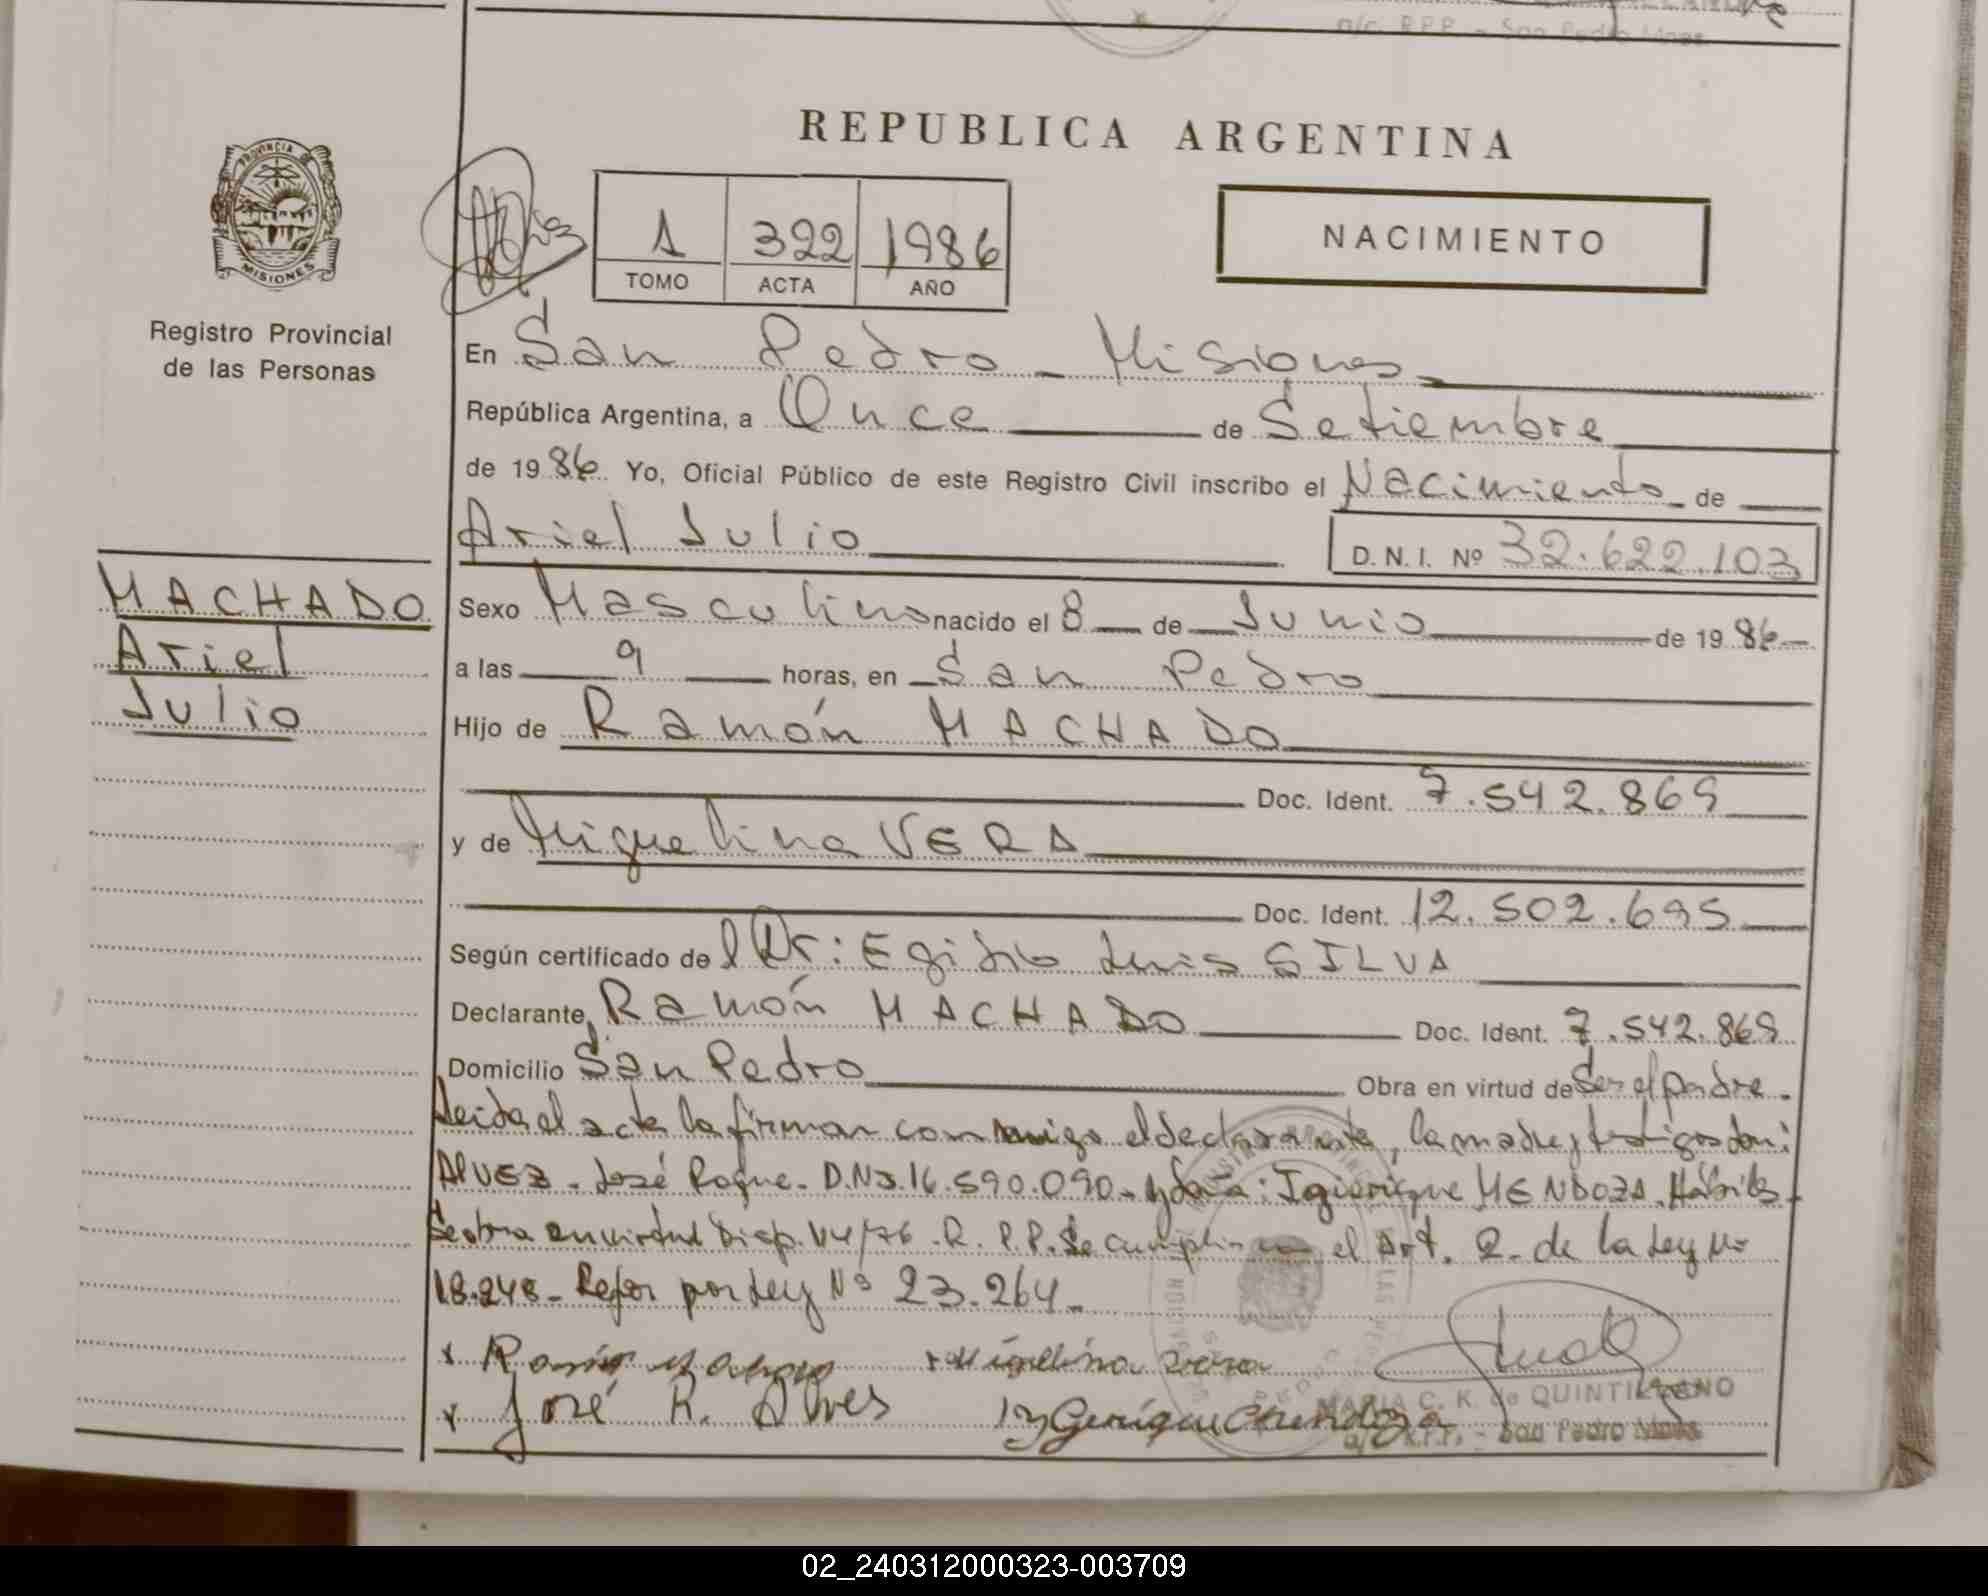 a/c. R.P.P. - San Pedro Mnes.
REPUBLICA ARGENTINA
PROVINCIA DE
MISIONES
1 322 1986
TOMO ACTA AÑO
NACIMIENTO
Registro Provincial
de las Personas
En San Pedro - Misiones
República Argentina, a Once de Setiembre
de 1986 Yo, Oficial Público de este Registro Civil inscribo el Nacimiento de
Ariel Julio D.N.I. Nº 32.622.103
MACHADO
Ariel
Julio
Sexo Masculino nacido el 8 de Junio de 1986
a las 9 horas, en San Pedro
Hijo de Ramón MACHADO
Doc. Ident. 7.542.869
y de Miguelina VERA
Doc. Ident. 12.502.695
Según certificado del Dr: Egidio Luis SILVA
Declarante Ramón MACHADO Doc. Ident. 7.542.869
Domicilio San Pedro Obra en virtud de Ser el padre.
Leida el acta la firman conmigo el declarante, la madre y testigos don:
ALVEZ - José Roque - D.N.I. 16.590.090 - y doña: Igierique MENDOZA. Hábiles -
Se obra en virtud Disp. 14/76. R.P.P. Se cumplim el Art. 2 - de la Ley Nº
18.248 - Refor por Ley Nº 23.264 -
x Ramón Machado x Miguelina Vera
x José R. Alves
MARIA C. K. de QUINTILIANO
a/c R.P.P. - San Pedro Mnes
02_240312000323-003709